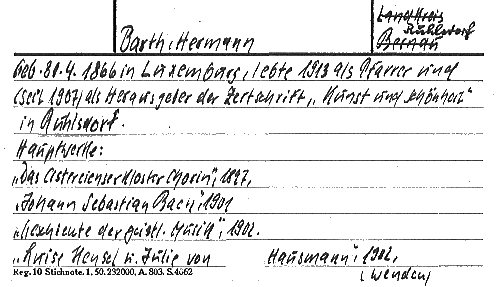 Landkreis
Ruhlsdorf
Barth, Hermann
Bernau
Geb. 30.4. 1866 in Luxemburg, lebte 1913 als Pfarrer und
(seit 1907) als Herausgeber der Zeitschrift, „Kunst und Schönheit"
in Ruhlsdorf.
Hauptwerke:
„Das Cistercienserkloster Chorin", 1897,
„Johann Sebastian Bach", 1901
„Geschichte der geistl. Musik", 1902.
„Luise Hensel u. Julie von Hausmann", 1902,
Reg. 10 Stichnote. 1, 50. 232000, A. 803. S. 4662
(Wendon)